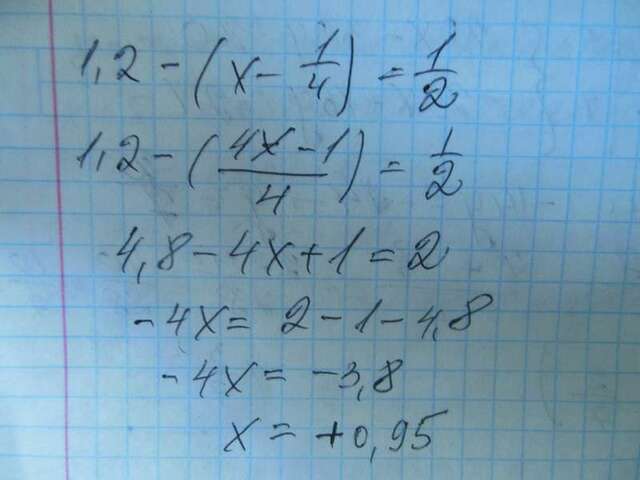 1,2 - (x - 1/4) = 1/2
1,2 - ((4x - 1)/4) = 1/2
4,8 - 4x + 1 = 2
-4x = 2 - 1 - 4,8
-4x = -3,8
x = +0,95